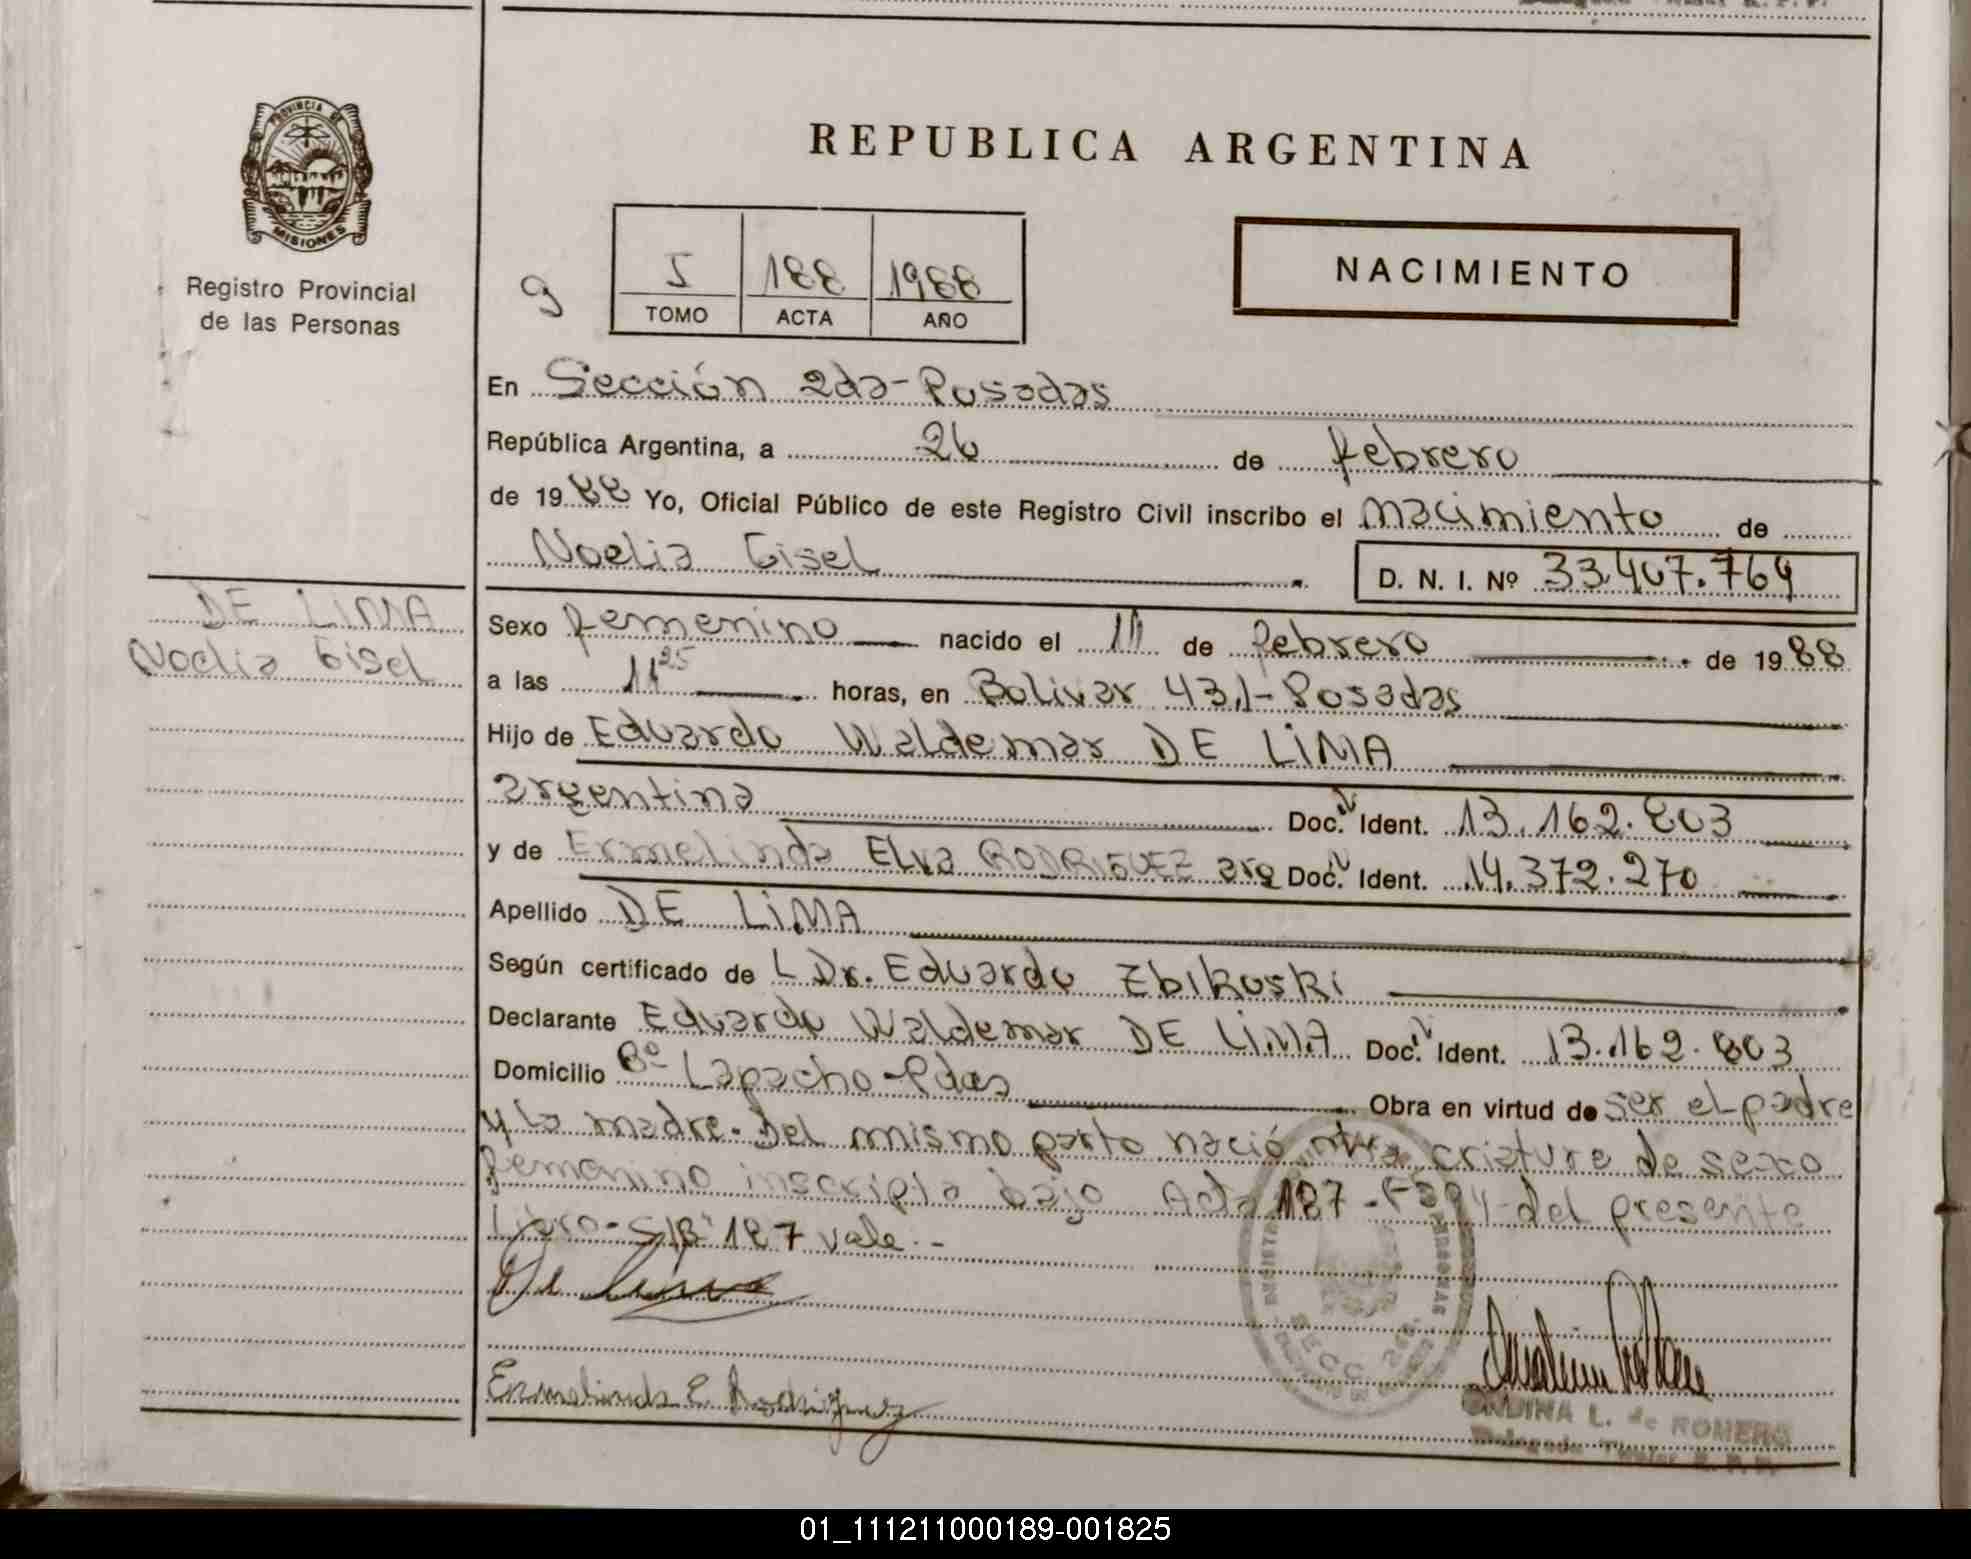 PROVINCIA DE
MISIONES
Registro Provincial
de las Personas
REPUBLICA ARGENTINA
I 188 1988
TOMO ACTA AÑO
NACIMIENTO
En Sección 2da-Posadas
República Argentina, a 26 de febrero
de 1988 Yo, Oficial Público de este Registro Civil inscribo el nacimiento de
Noelia Gisel
D. N. I. Nº 33.407.764
DE LIMA
Noelia Gisel
Sexo femenino nacido el 11 de febrero de 1988
a las 11 25 horas, en Bolivar 431-Posadas
Hijo de Eduardo Waldemar DE LIMA
argentina Doc. Ident. 13.162.803
y de Ermelinda Elva RODRIGUEZ arg Doc. Ident. 14.372.270
Apellido DE LIMA
Según certificado de L Dr. Eduardo Zbikoski
Declarante Eduardo Waldemar DE LIMA Doc. Ident. 13.162.803
Domicilio Bº Lapacho-Pdas Obra en virtud de ser el padre
y la madre. Del mismo parto nació otra criatura de sexo
femenino inscripta bajo Acta 187 - Fº 94 del presente
Libro-S/B 187 vale.-
De Lima
Ermelinda E Rodriguez
SECC 2da
ONDINA L. de ROMERO
Delegada Titular R. P. P.
01_111211000189-001825